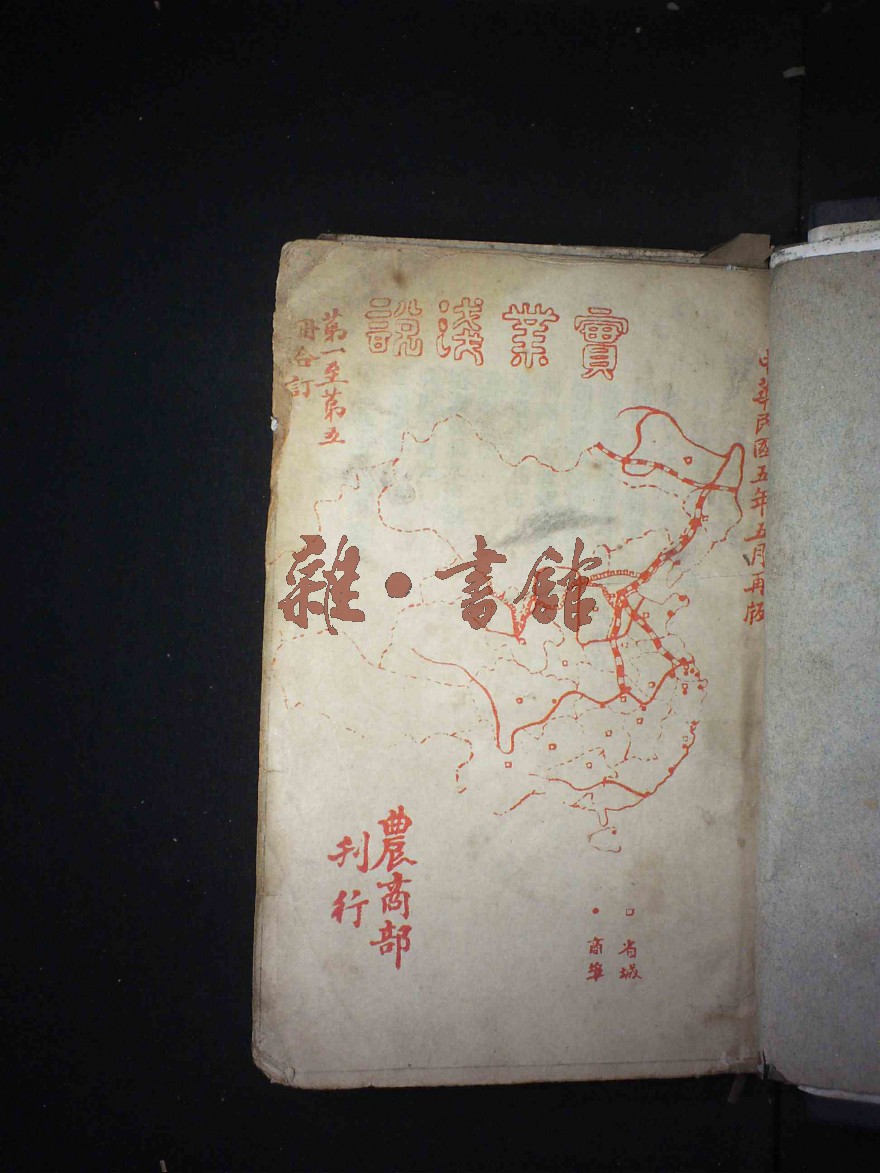 中華民國五年五月再版
實業淺説
第一至第五
冊合訂
農商部
刊行
省城
商埠
雜·書館